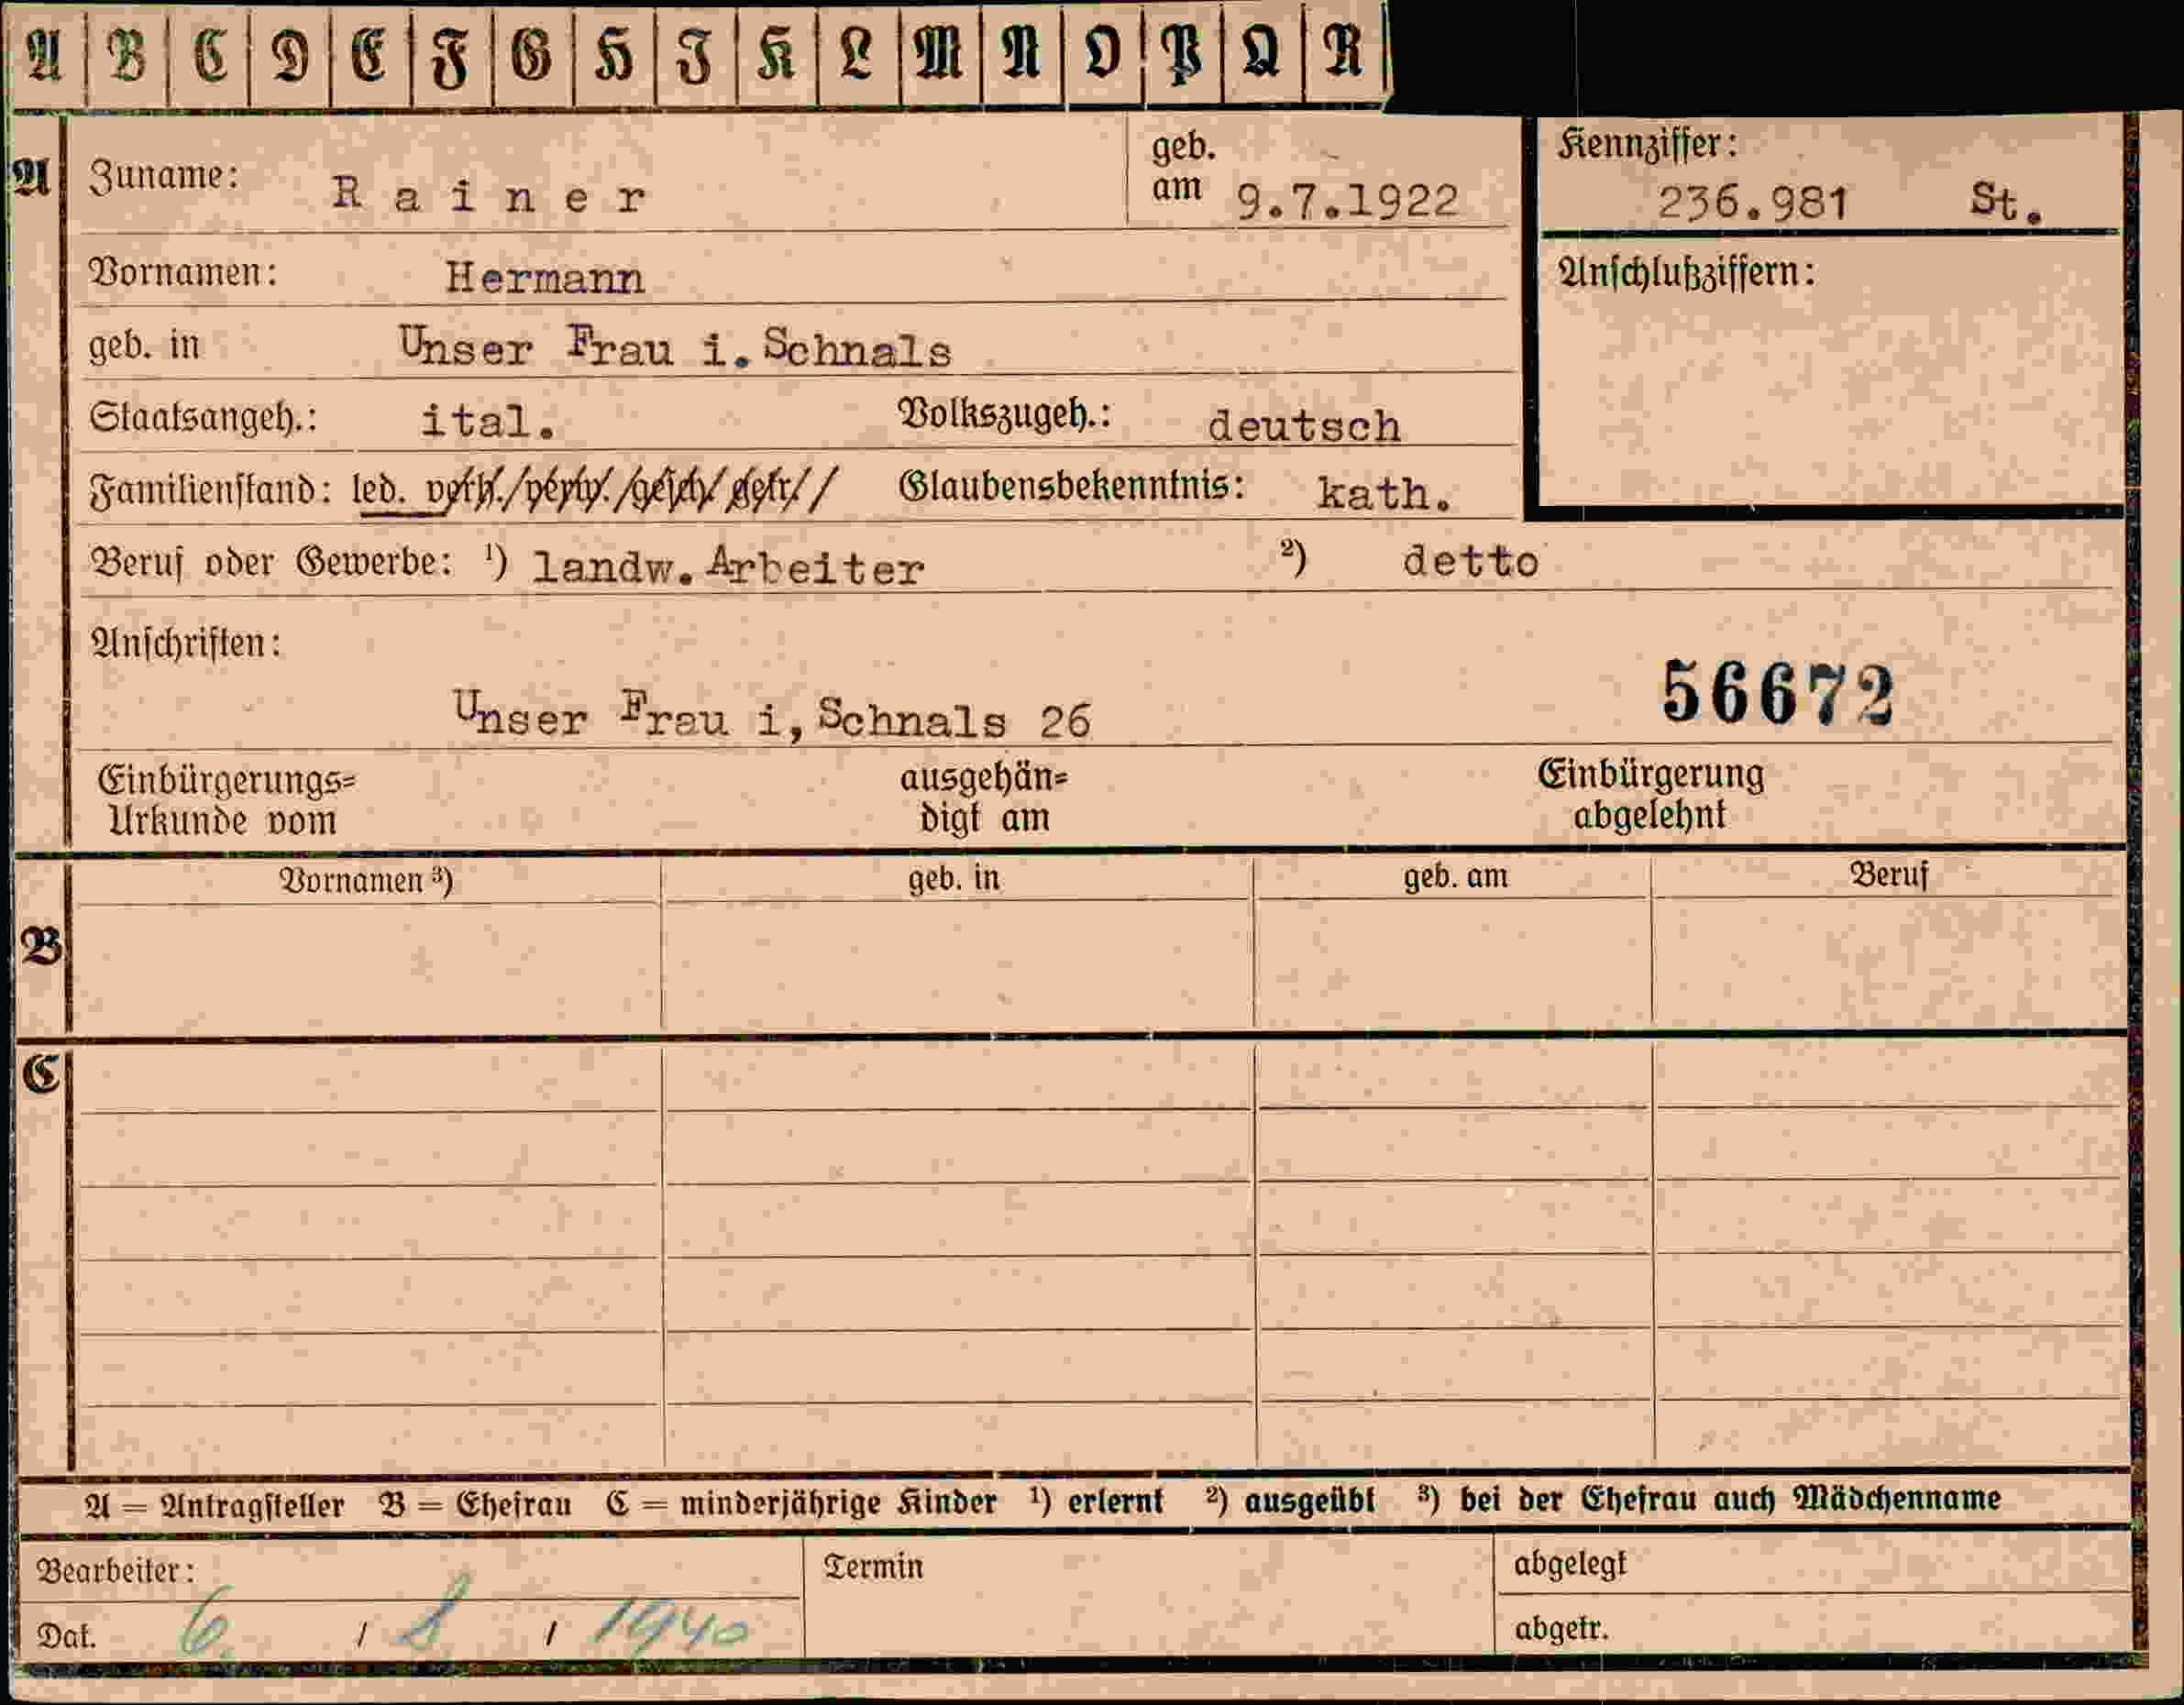 A B C D E F G H I K L M N O P Q R
A Zuname: Rainer geb. am 9.7.1922
Kennziffer:
236.981 St.
Vornamen: Hermann
Anschlußziffern:
geb. in Unser Frau i. Schnals
Staatsangeh.: ital. Volkszugeh.: deutsch
Familienstand: led. verh./verw./gesch/getr// Glaubensbekenntnis: kath.
Beruf oder Gewerbe: ¹) landw. Arbeiter ²) detto
Anschriften:
56672
Unser Frau i, Schnals 26
Einbürgerungs=
Urkunde vom
ausgehän=
digt am
Einbürgerung
abgelehnt
Vornamen ³) geb. in geb. am Beruf
B
C
A = Antragsteller B = Ehefrau C = minderjährige Kinder ¹) erlernt ²) ausgeübt ³) bei der Ehefrau auch Mädchenname
Bearbeiter: Termin abgelegt
Dat. 6. / 8 / 1940 abgetr.